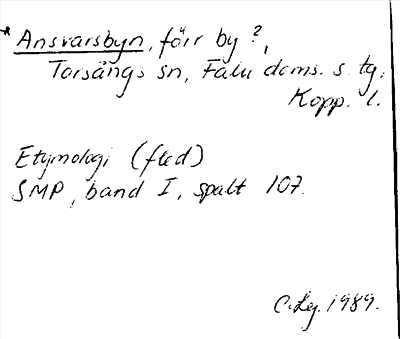 * Ansvarsbyn, förr by ?,
Torsångs sn, Falu doms. s. tg,
Kopp. l.
Etymologi (fled)
SMP, band I, spalt 107.
C.Lg. 1989.